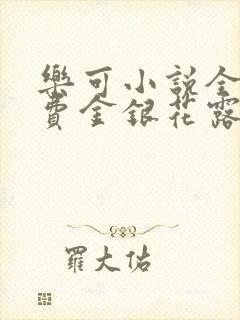 樂可小說全
費金銀花露
羅大佑